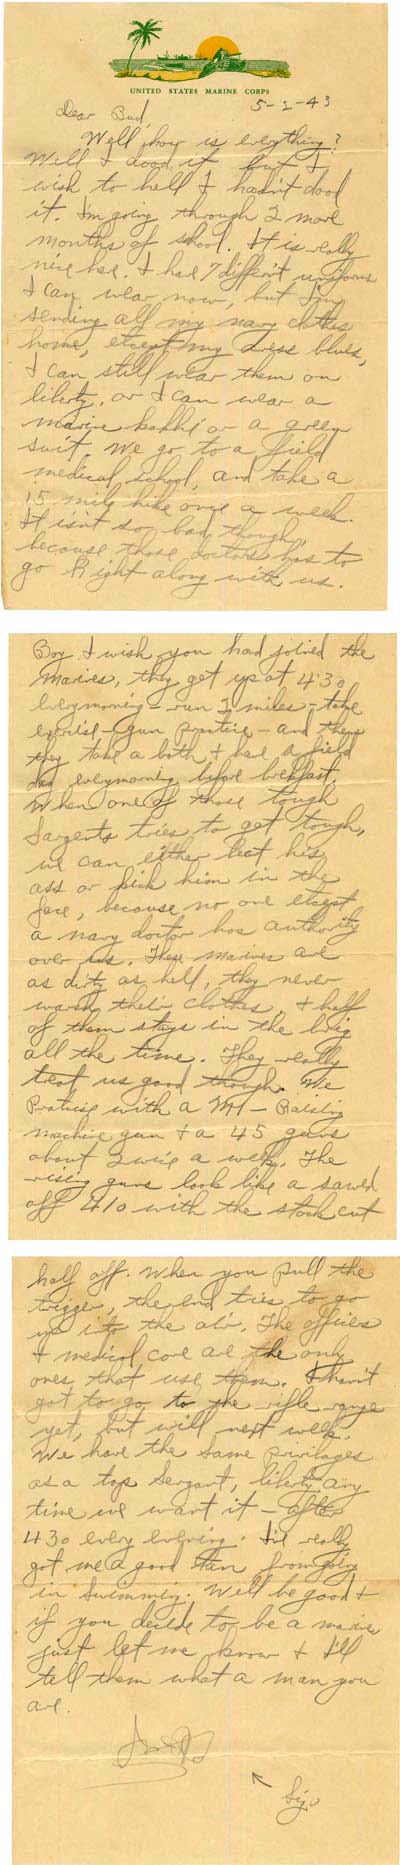 UNITED STATES MARINE CORPS
5-2-43
Dear Bud,
Well how is everything?
Well I dood it but I
wish to hell I hadn't dood
it. I'm going through 2 more
months of school. It is really
nice here. I have 7 differn't uniforms
I can wear now, but I'm
sending all my navy clothes
home, except my dress blues,
I can still wear them on
liberty, or I can wear a
marine kakhi or a green
suit. We go to a field
medical school, and take a
15 mile hike once a week.
It isn't so bad though,
because those doctors has to
go Right along with us.
Boy I wish you had joined the
Marines, they get up at 430
everymorning - run 2 miles - take
exercise - gun practice - and then
they take a bath & have a field
day everymorning before brekfast.
When one of those tough
Sargents tries to get tough,
we can either beat his
ass or kick him in the
face, because no one except
a navy doctor has authority
over us. These marines are
as dirty as hell, they never
wash their clothes, & half
of them stays in the brig
all the time. They really
treat us good though. We
Practice with a M1 - Raising
machine gun & a 45 guns
about 2 wice a week. The
rising guns look like a sawed
off 410 with the stock cut
half off. When you pull the
trigger, the end tries to go
up into the air. The officers
& medical core are the only
ones that use them. I havn't
got to go to the rifle range
yet, but will next week.
We have the same privilages
as a top Sergant, liberty any
time we want it - after
430 every evening. I've really
got me a good tan from going
in swimming. Well be good &
if you decide to be a marine
just let me know & I'll
tell them what a man you
are.
Sig.